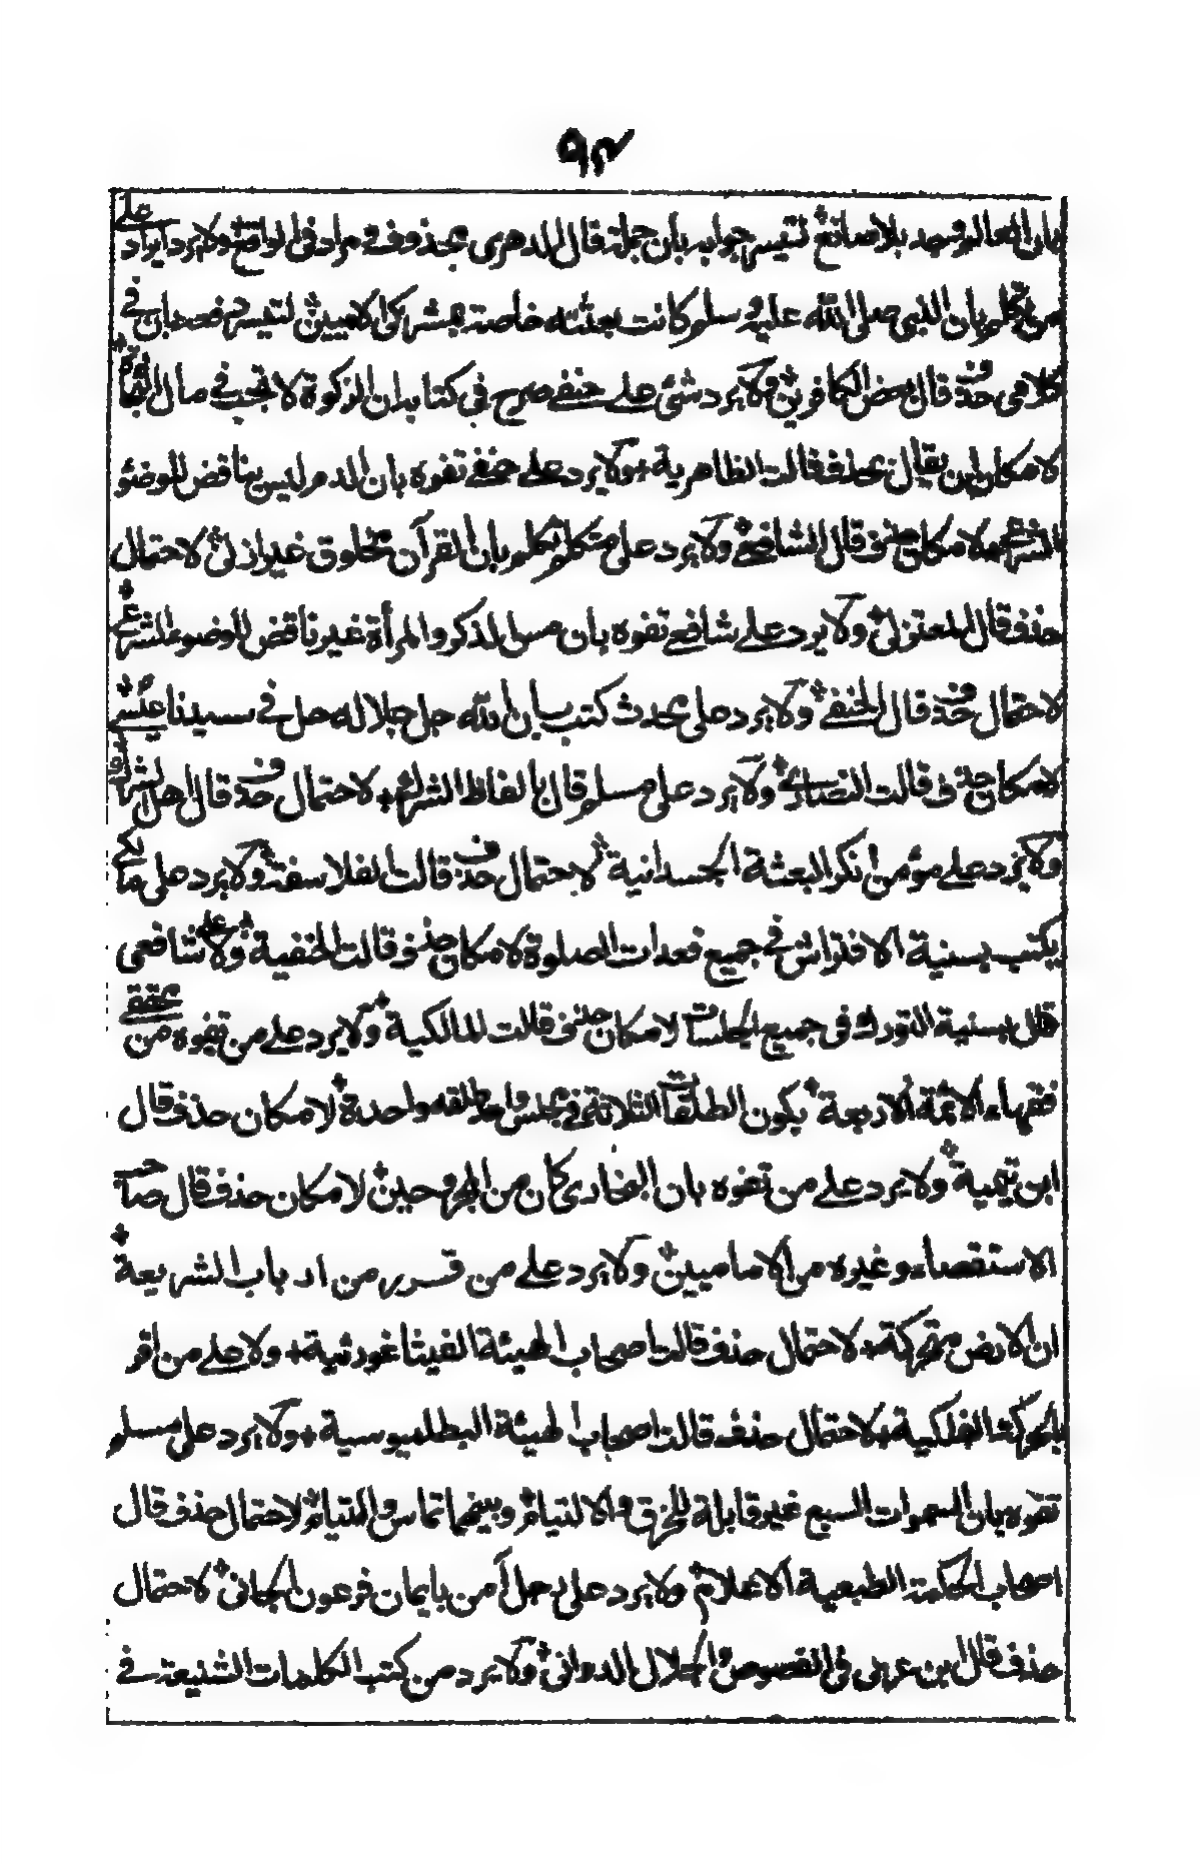 ٩٤
بان العالم وجد بلا صانع لتيسر جوابه بان جملة قال الدهري محذوفة مراد في الواقع ولا يرد ايراد على
من تكلم بان النبي صلى الله عليه وسلم كانت بعثته خاصة بمشركي الاميين لتيسر دفعه بان في
كلامي حذف قال بعض الكافرين ولا يرد شئ على حنفي صرح في كتابه ان الزكوة لا تجب في مال
لامكان ان يقال بحذف قالت الظاهرية ولا يرد على حنفي تفوه بان الدم ليس بناقض للوضوء
الشرعي لامكان حذف قال الشافعي ولا يرد على متكلم تكلم بان القرآن مخلوق غير ازلي لاحتمال
حذف قال المعتزلي ولا يرد على شافعي تفوه بان مس الذكر والمرأة غير ناقض للوضوء الشرعي
لاحتمال حذف قال الحنفي ولا يرد على محدث كتب بان الله جل جلاله حل في سيدنا عيسى
لامكان حذف قالت النصارى ولا يرد على مسلم قال بالفاظ الشرك لاحتمال حذف قال اهل الشرك
ولا يرد على مؤمن انكر البعثة الجسدانية لاحتمال حذف قالت الفلاسفة ولا يرد على مالكي
يكتب بسنية الافتراش في جميع قعدات الصلوة لامكان حذف قالت الحنفية ولا على شافعي
قال بسنية التورك في جميع الجلسات لامكان حذف قالت المالكية ولا يرد على من تفوه من محققي
فقهاء الائمة الاربعة بكون الطلقات الثلاثة في مجلس واحد طلقة واحدة لامكان حذف قال
ابن تيمية ولا يرد على من تفوه بان البخاري كان من المجروحين لامكان حذف قال صاحب
الاستقصاء وغيره من الاماميين ولا يرد على من قرر من ارباب الشريعة
ان الارض متحركة لاحتمال حذف قالت اصحاب الهيئة الفيثاغورثية ولا على من اقر
بالحركة الفلكية لاحتمال حذف قالت اصحاب الهيئة البطليموسية ولا يرد على مسلم
تفوه بان السموات السبع غير قابلة للخرق والالتيام وبينهما تماس والتيام لاحتمال حذف قال
اصحاب الحكمة الطبعية الاعلام ولا يرد على رجل آمن بايمان فرعون الجاني لاحتمال
حذف قال ابن عربي في الفصوص والجلال الدواني ولا يرد من كتب الكلمات الشنيعة في